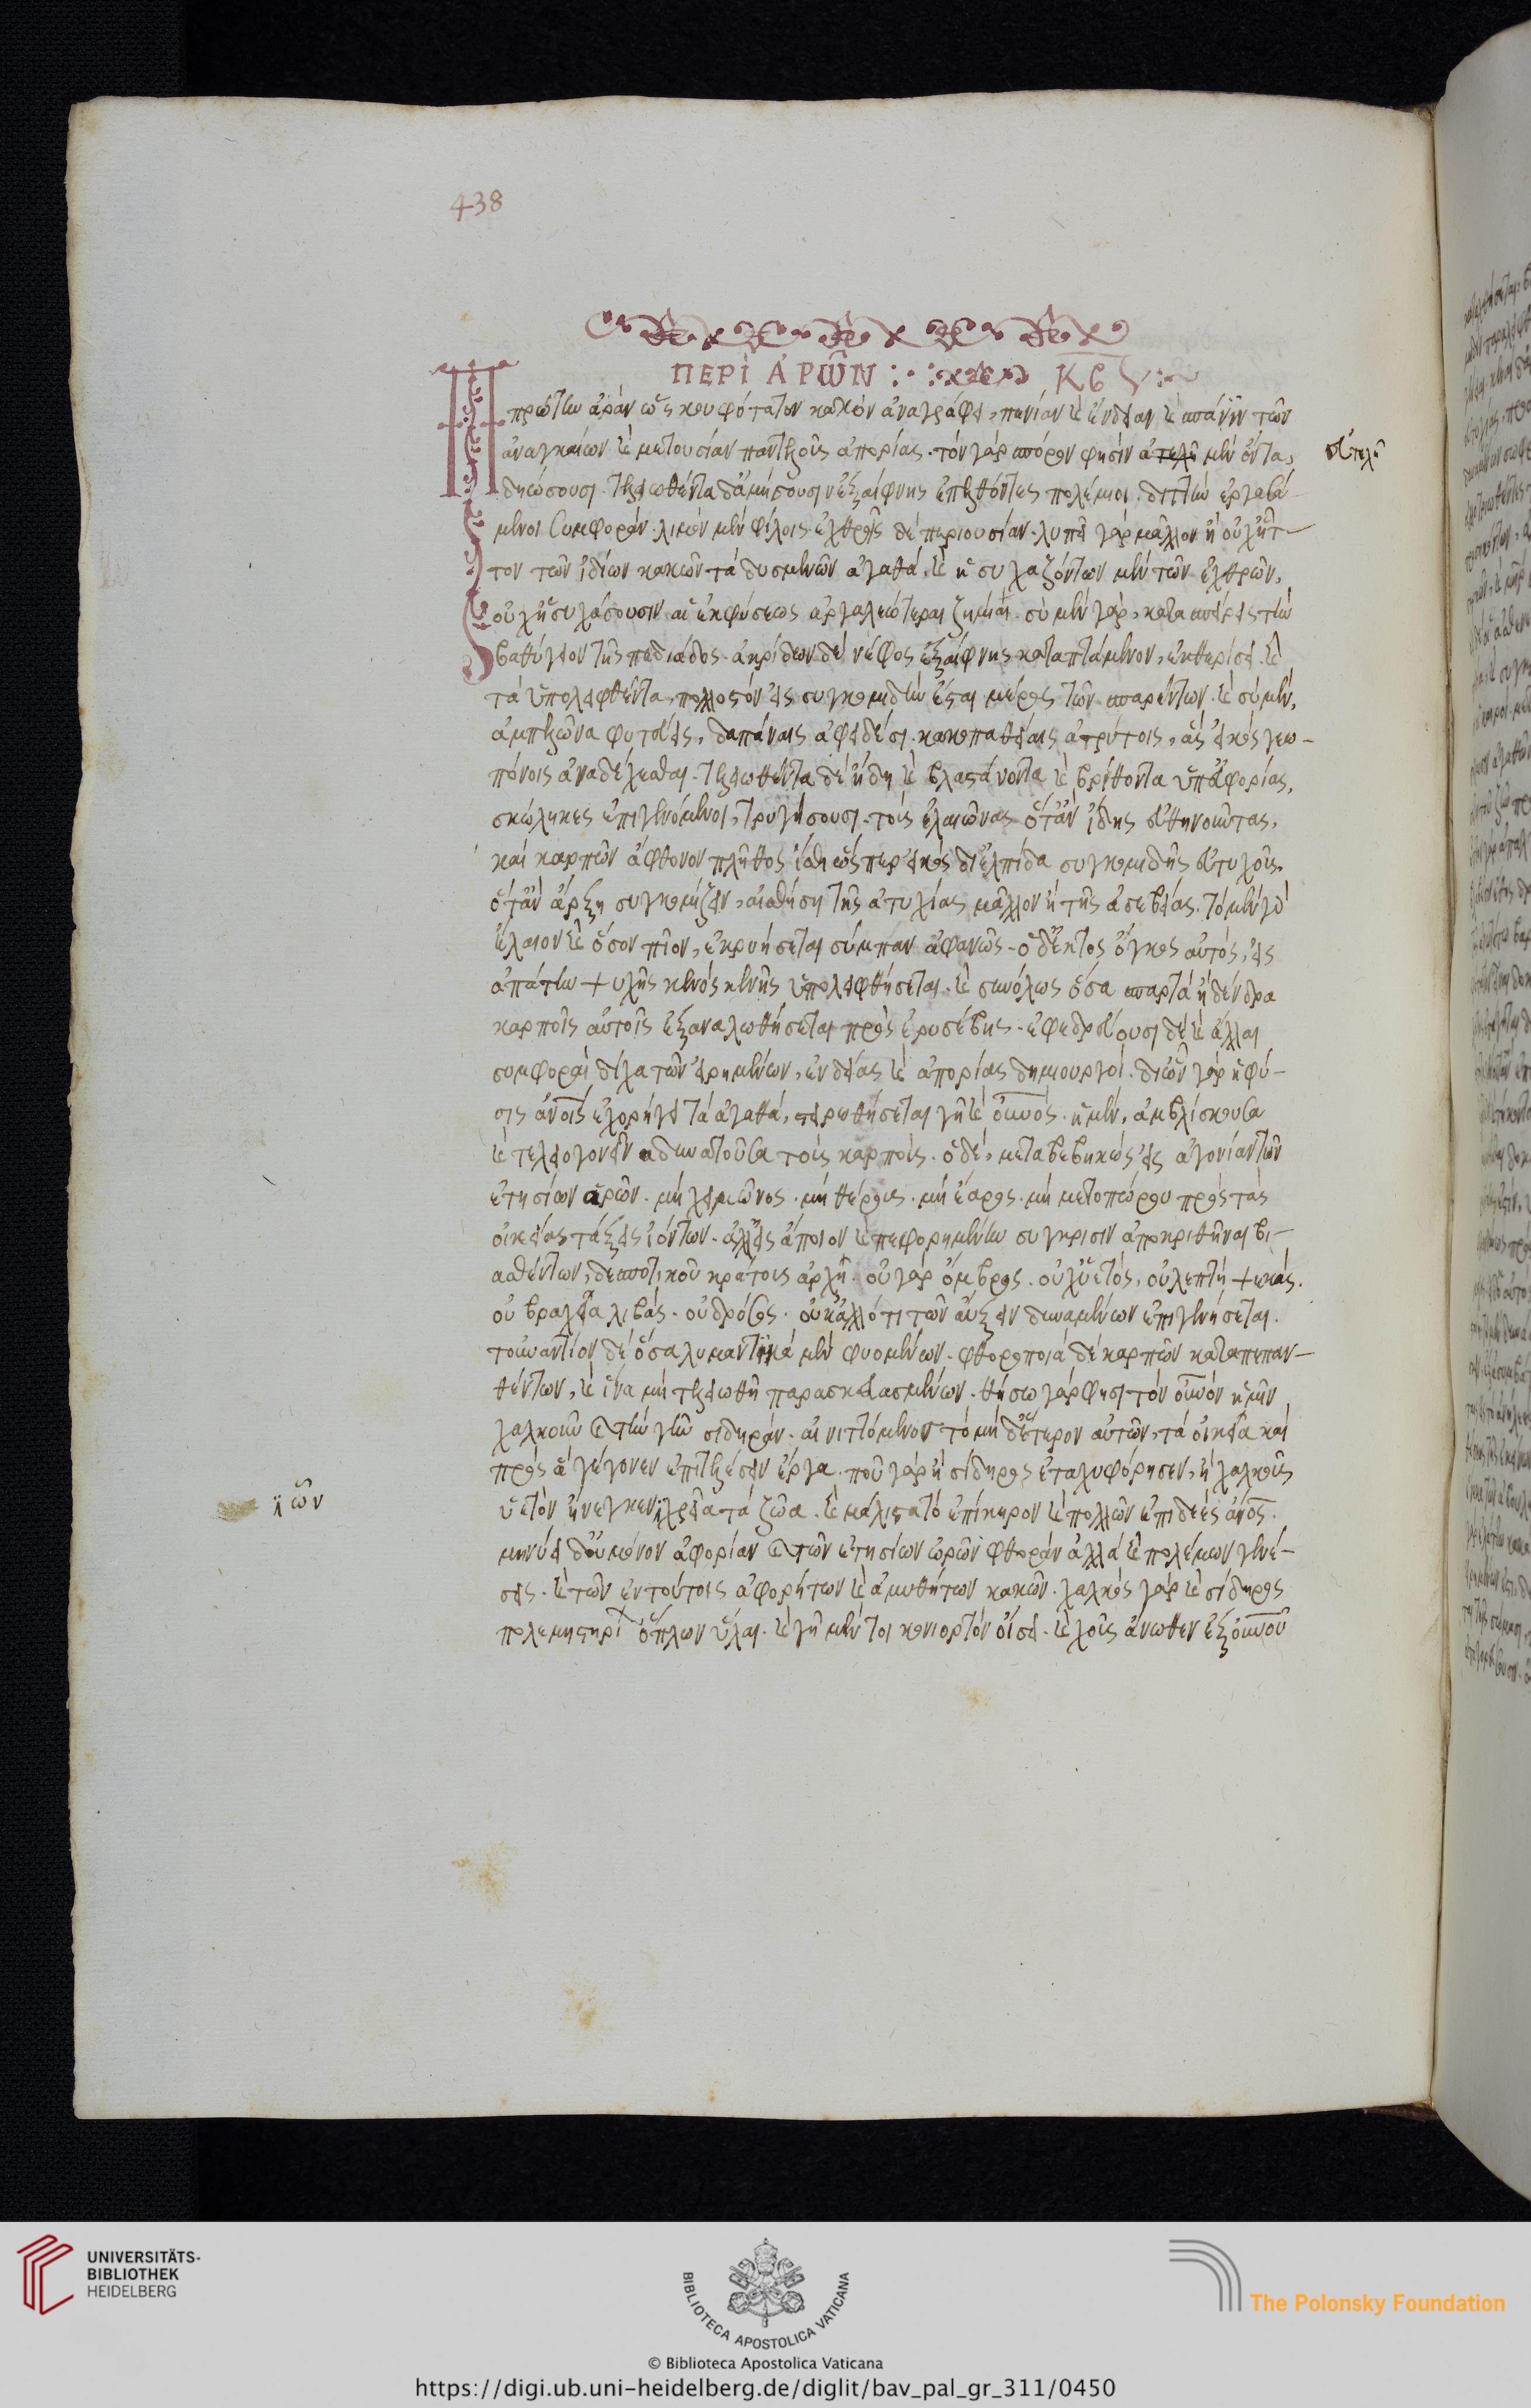 438
ΠΕΡΙ ἈΡΩΝ : κϛ
Πρώτην ἀρὰν ὡς κουφότατον κακὸν ἀναγράφει, πενίαν καὶ ἔνδειαν καὶ σπάνιν τῶν
ἀναγκαίων καὶ μετουσίαν παντελοῦς ἀπορίας. τὸν γὰρ σπόρον φησὶν ἀτελῆ μὲν ὄντα,
εὐτελῆ
δηώσουσι. τελειωθέντα δ' ἀμήσουσιν ἐξαίφνης ἐπελθόντες πολέμιοι. διττὴν ἐργασά-
μενοι συμφοράν. λιμὸν μὲν φίλοις. ἐχθροῖς δὲ περιουσίαν. λυπεῖ γὰρ μᾶλλον ἢ οὐχ ἧτ-
τον τῶν ἰδίων κακῶν τὰ δυσμενῶν ἀγαθά. καὶ ἡσυχαζόντων μὲν τῶν ἐχθρῶν,
οὐχ ἡσυχάσουσιν αἱ ἐκ φύσεως ἀργαλεώτεραι ζημίαι. σὺ μὲν γὰρ, κατασπείρεις τὴν
βαθύγειον τῆς πεδιάδος. ἀκρίδων δὲ νέφος ἐξαίφνης καταπτάμενον, ἐκθερίσει. καὶ
τὰ ὑπολειφθέντα, πολλοστὸν εἰς συγκομιδὴν ἔσται μέρος τῶν σπαρέντων. καὶ σὺ μὲν,
ἀμπελῶνα φυτεύεις, δαπάναις ἀφειδέσι. κακοπαθείαις ἀτρύτοις, ἃς εἰκὸς γεω-
πόνοις ἀναδέχεσθαι. τελειωθέντα δὲ ἤδη καὶ βλαστάνοντα καὶ βρίθοντα ὑπ' εὐφορίας,
σκώληκες ἐπιγενόμενοι, τρυγήσουσι. τοὺς ἐλαιῶνας ὅταν ἴδῃς εὐθηνοῦντας,
καὶ καρπῶν ἄφθονον πλῆθος ἡσθῇς ὥσπερ εἰκὸς δι' ἐλπίδα συγκομιδῆς εὐτυχοῦς.
ὅταν ἄρξῃ συγκομίζειν, αἰσθήσῃ τῆς ἀτυχίας μᾶλλον ἢ τῆς ἀσεβείας. τὸ μὲν γὰρ
ἔλαιον καὶ ὅσον πῖον, ἐκρυήσεται σύμπαν ἀφανῶς. ὁ δ' ἐκτὸς ὄγκος αὐτὸς, εἰς
ἀπάτην ψυχῆς κενὸς κενῆς ὑπολειφθήσεται. καὶ συνόλως ὅσα σπαρτὰ ἢ δένδρα
καρποῖς αὐτοῖς ἐξαναλωθήσεται πρὸς ἐρυσίβης. ἐφεδρεύουσι δὲ καὶ ἄλλαι
συμφοραὶ δίχα τῶν εἰρημένων, ἐνδείας καὶ ἀπορίας δημιουργοί. δι' ὧν γὰρ ἡ φύ-
σις ἀνοις ἐχορήγει τὰ ἀγαθά, στειρωθήσεται γῆ καὶ οὐνός. ἡ μὲν, ἀμβλίσκουσα
καὶ τελειογονεῖν ἀδυνατοῦσα τοὺς καρπούς. ὁ δὲ, μεταβεβηκὼς εἰς ἀγονίαν τῶν
ἐτησίων ὡρῶν. μὴ χειμῶνος. μὴ θέρους. μὴ ἔαρος. μὴ μετοπώρου πρὸς τὰς
οἰκείας τάξεις ἰόντων. ἀλλ' εἰς ἄποιον καὶ πεφορημένην σύγκρισιν ἀποκριθῆναι βι-
ασθέντων, δεσποτικοῦ κράτους ἀρχῇ. οὐ γὰρ ὄμβρος. οὐχ ὑετός, οὐ λεπτὴ ψεκάς.
οὐ βραχεῖα λιβάς. οὐ δρόσος. οὐκ ἄλλό τι τῶν αὔξειν δυναμένων ἐπιγενήσεται.
τοὐναντίον δὲ ὅσα λυμαντικὰ μὲν φυομένων. φθοροποιὰ δὲ καρπῶν καταπεπαν-
θέντων, καὶ ἵνα μὴ τελειωθῇ παρασκευασμένων. θήσω γάρ φησι τὸν οὐνὸν ὑμῖν
χαλκοῦν καὶ τὴν γῆν σιδηρᾶν. αἰνιττόμενον τὸ μηδέτερον αὐτῶν, τὰ οἰκεῖα καὶ
πρὸς ἃ γέγονεν ἐπιτελέσειν ἔργα. ποῦ γὰρ ἢ σίδηρος ἐσταχυφόρησεν, ἢ χαλκὸς
ὑετὸν ἤνεγκεν, ὧν χρεῖα τὰ ζῶα. καὶ μάλιστα τὸ ἐπίκηρον καὶ πολλῶν ἐπιδεὲς ἀνος.
ὧν
μηνύει δ' οὐ μόνον ἀφορίαν καὶ τῶν ἐτησίων ὡρῶν φθορὰν ἀλλὰ καὶ πολέμων γενέ-
σεις. καὶ τῶν ἐν τούτοις ἀφορήτων καὶ ἀμυθήτων κακῶν. χαλκὸς γὰρ καὶ σίδηρος
πολεμιστηρί ὅπλων ὗλαι. καὶ γῆ μέντοι κονιορτὸν οἴσει. καὶ χοῦς ἄνωθεν ἐξ οὐνοῦ
UNIVERSITÄTS-
BIBLIOTHEK
HEIDELBERG
BIBLIOTECA APOSTOLICA VATICANA
The Polonsky Foundation
© Biblioteca Apostolica Vaticana
https://digi.ub.uni-heidelberg.de/diglit/bav_pal_gr_311/0450